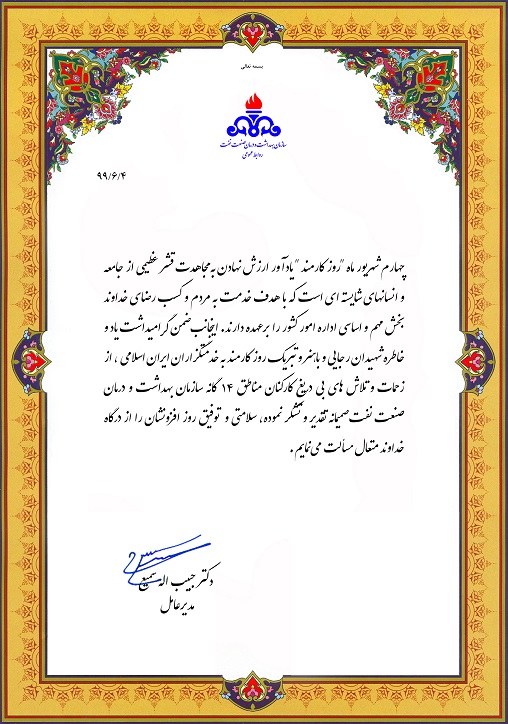 بسمه تعالی
سازمان بهداشت و درمان صنعت نفت
روابط عمومی
۹۹/۶/۴
چهارم شهریور ماه "روز کارمند" یادآور ارزش نهادن به مجاهدت قشر عظیمی از جامعه
و انسانهای شایسته ای است که با هدف خدمت به مردم و کسب رضای خداوند
بخش مهم و اساسی اداره امور کشور را برعهده دارند. اینجانب ضمن گرامیداشت یاد و
خاطره شهیدان رجایی و باهنر و تبریک روز کارمند به خدمتگزاران ایران اسلامی ، از
زحمات و تلاش های بی دریغ کارکنان مناطق ۱۴ گانه سازمان بهداشت و درمان
صنعت نفت صمیمانه تقدیر و تشکر نموده، سلامتی و توفیق روز افزونشان را از درگاه
خداوند متعال مسألت می نمایم.
دکتر حبیب اله سمیع
مدیرعامل